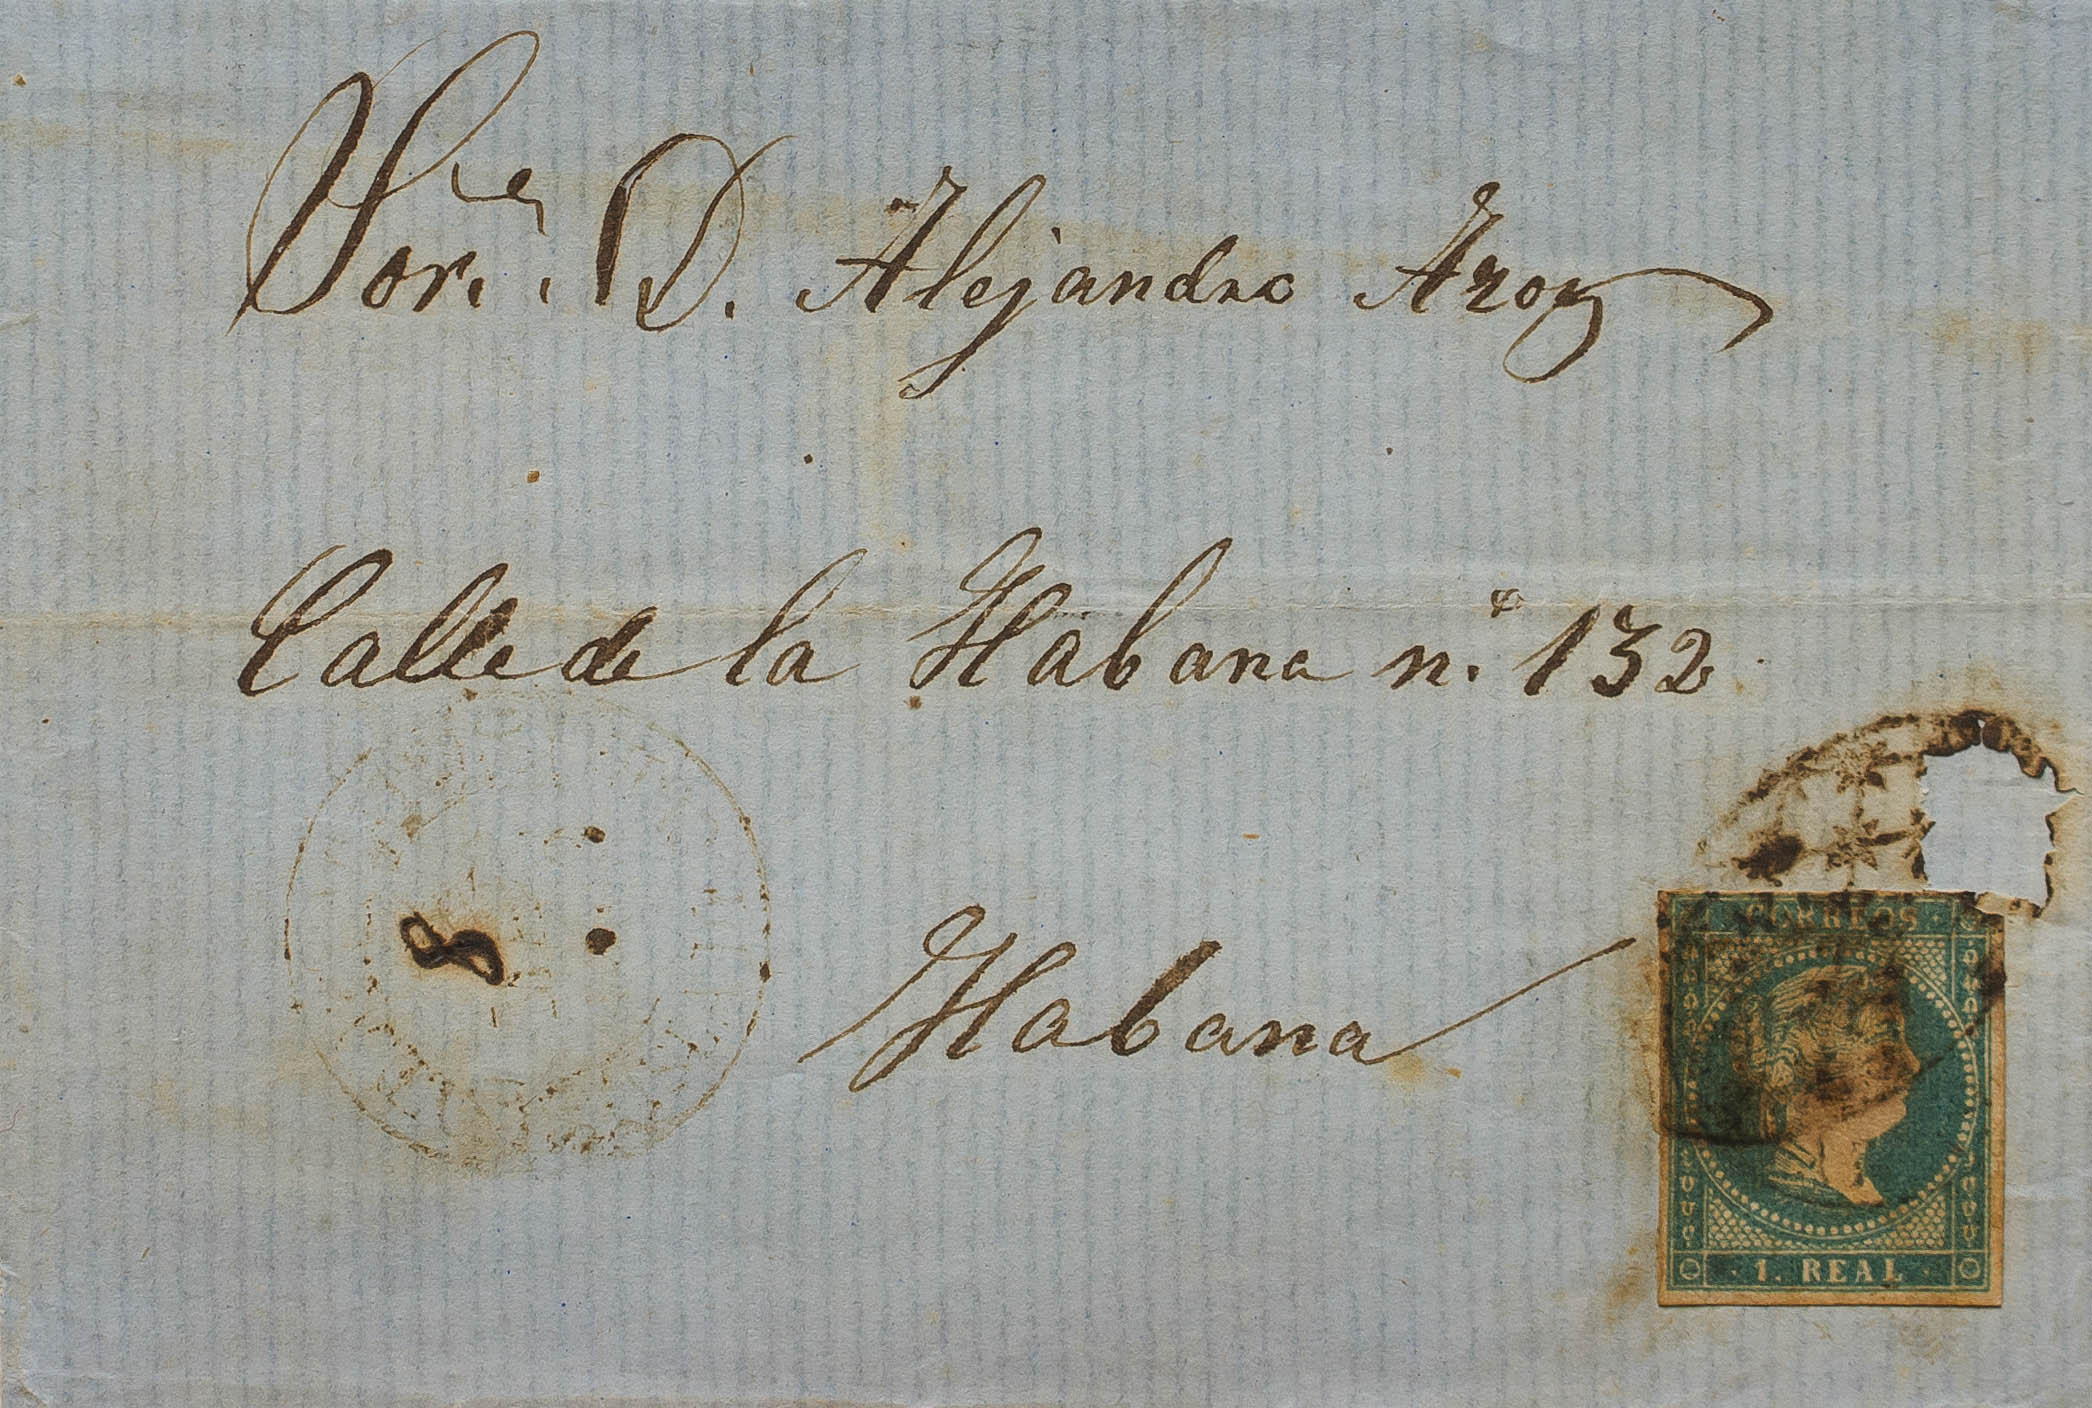 Sor. D. Alejandro Aroz
Calle de la Habana n.° 132
8
Habana
CORREOS
1. REAL